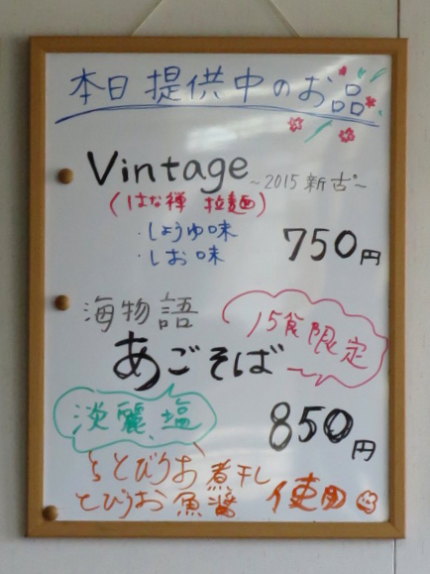 本日提供中のお品
Vintage ~2015新古~
(はな禅 拉麺)
・しょうゆ味
・しお味
750円
海物語
15食限定
あごそば
淡麗塩
850円
とびうお煮干し
とびうお魚醬 使用